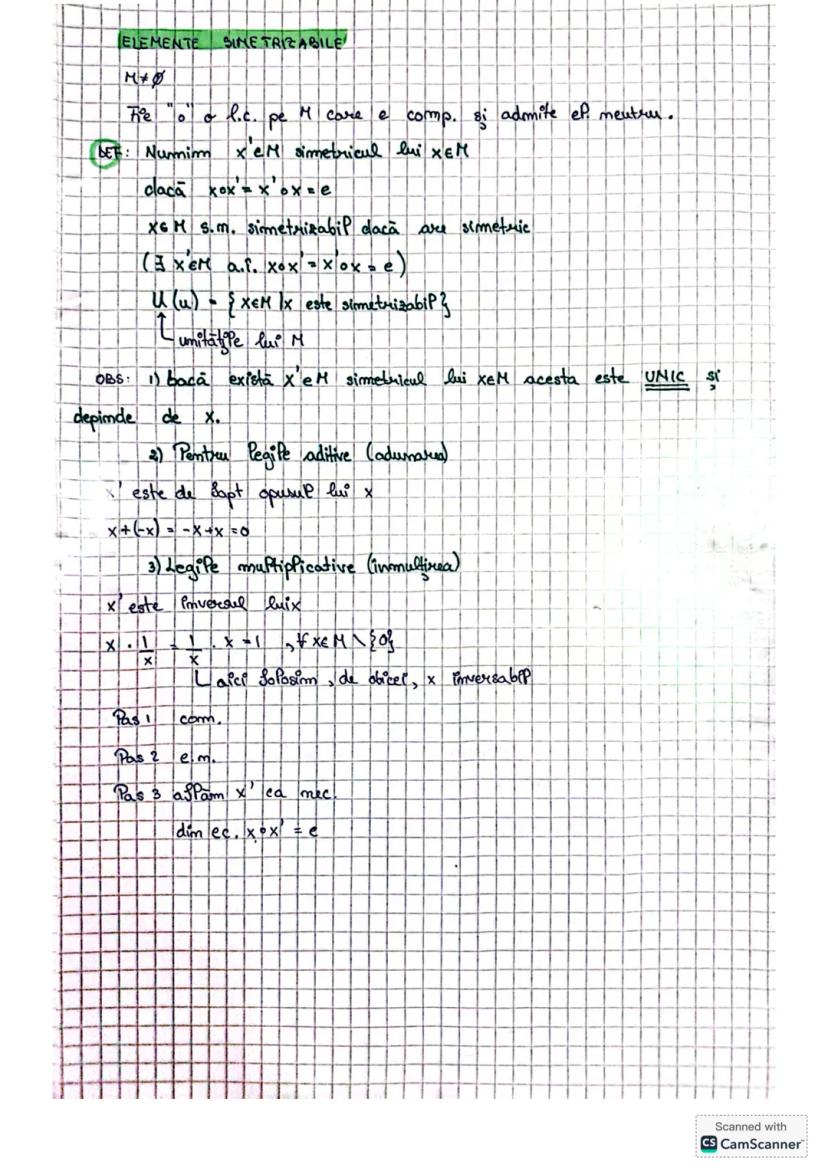 ELEMENTE SIMETRIZABILE
M≠∅
Fie "o" o l.c. pe M care e comp. și admite el. neutru.
DEF: Numim x'∈M simetricul lui x∈M
dacă x∘x' = x'∘x = e
x∈M s.m. simetrizabil dacă are simetric
(∃ x'∈M a.î. x∘x' = x'∘x = e)
U(u) = {x∈M | x este simetrizabil}
unitățile lui M
OBS: 1) Dacă există x'∈M simetricul lui x∈M acesta este UNIC și
depinde de x.
2) Pentru legile aditive (adunarea)
x' este de fapt opusul lui x
x+(-x) = -x+x = 0
3) Legile multiplicative (înmulțirea)
x' este inversul lui x
x · 1/x = 1/x · x = 1, ∀ x∈M \ {0}
aici folosim, de obicei, x inversabil
Pas 1 com.
Pas 2 e.n.
Pas 3 aflăm x' ca nec.
din ec. x∘x' = e
Scanned with
CS CamScanner